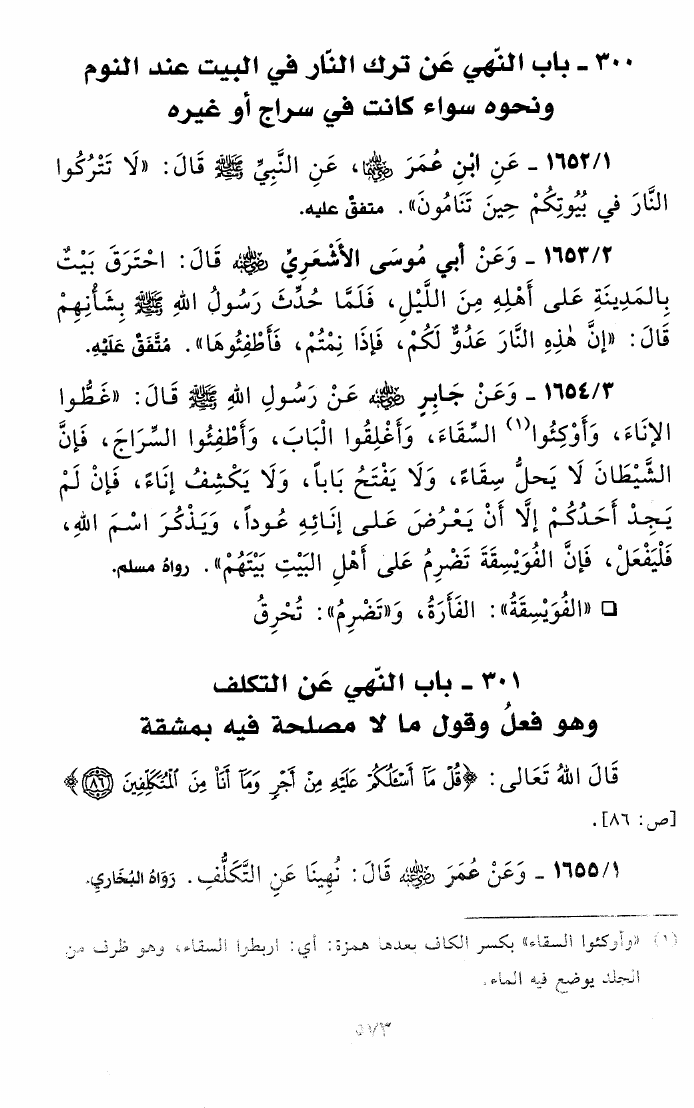 ٣٠٠ ـ باب النّهي عَن ترك النّار في البيت عند النوم
ونحوه سواء كانت في سراج أو غيره
١٦٥٢/١ ـ عَنِ ابْنِ عُمَرَ رضي الله عنهما، عَنِ النَّبِيِّ ﷺ قَالَ: «لَا تَتْرُكُوا
النَّارَ في بُيُوتِكُمْ حِينَ تَنَامُونَ». متفقٌ عليه.
١٦٥٣/٢ ـ وَعَنْ أبي مُوسَى الأَشْعَرِيِّ رضي الله عنه قَالَ: احْتَرَقَ بَيْتٌ
بِالمَدِينَةِ عَلى أَهْلِهِ مِنَ اللَّيْلِ، فَلَمَّا حُدِّثَ رَسُولُ اللهِ ﷺ بِشَأْنِهِمْ
قَالَ: «إنَّ هٰذِهِ النَّارَ عَدُوٌّ لَكُمْ، فَإذَا نِمْتُمْ، فَأَطْفِئُوهَا». مُتَّفَقٌ عَلَيْهِ.
١٦٥٤/٣ ـ وَعَنْ جَابِرٍ رضي الله عنه عَنْ رَسُولِ اللهِ ﷺ قَالَ: «غَطُّوا
الإنَاءَ، وَأَوْكِئُوا(١) السِّقَاءَ، وَأَغْلِقُوا الْبَابَ، وَأَطْفِئُوا السِّرَاجَ، فَإنَّ
الشَّيْطَانَ لَا يَحلُّ سِقَاءً، وَلَا يَفْتَحُ بَاباً، وَلَا يَكْشِفُ إنَاءً، فَإنْ لَمْ
يَجِدْ أَحَدُكُمْ إلَّا أَنْ يَعْرُضَ عَلى إنَائِهِ عُوداً، وَيَذْكُرَ اسْمَ اللهِ،
فَلْيَفْعَلْ، فَإنَّ الفُوَيْسِقَةَ تَضْرِمُ عَلى أَهْلِ البَيْتِ بَيْتَهُمْ». رواهُ مسلم.
❑ «الفُوَيْسِقَةُ»: الفَأْرَةُ، وَ«تَضْرِمُ»: تُحْرِقُ
٣٠١ ـ باب النّهي عَن التكلف
وهو فعلُ وقول ما لا مصلحة فيه بمشقة
قَالَ اللهُ تَعَالى: ﴿قُلْ مَآ أَسْـَٔلُكُمْ عَلَيْهِ مِنْ أَجْرٍ وَمَآ أَنَا۠ مِنَ ٱلْمُتَكَلِّفِينَ ٨٦﴾
[ص: ٨٦].
١٦٥٥/١ ـ وَعَنْ عُمَرَ رضي الله عنه قَالَ: نُهِينَا عَنِ التَّكَلُّفِ. رَوَاهُ البُخَاري.
(١) «وأوكئوا السقاء» بكسر الكاف بعدها همزة: أي: اربطوا السقاء، وهو ظرف من
الجلد يوضع فيه الماء.
٥٧٣